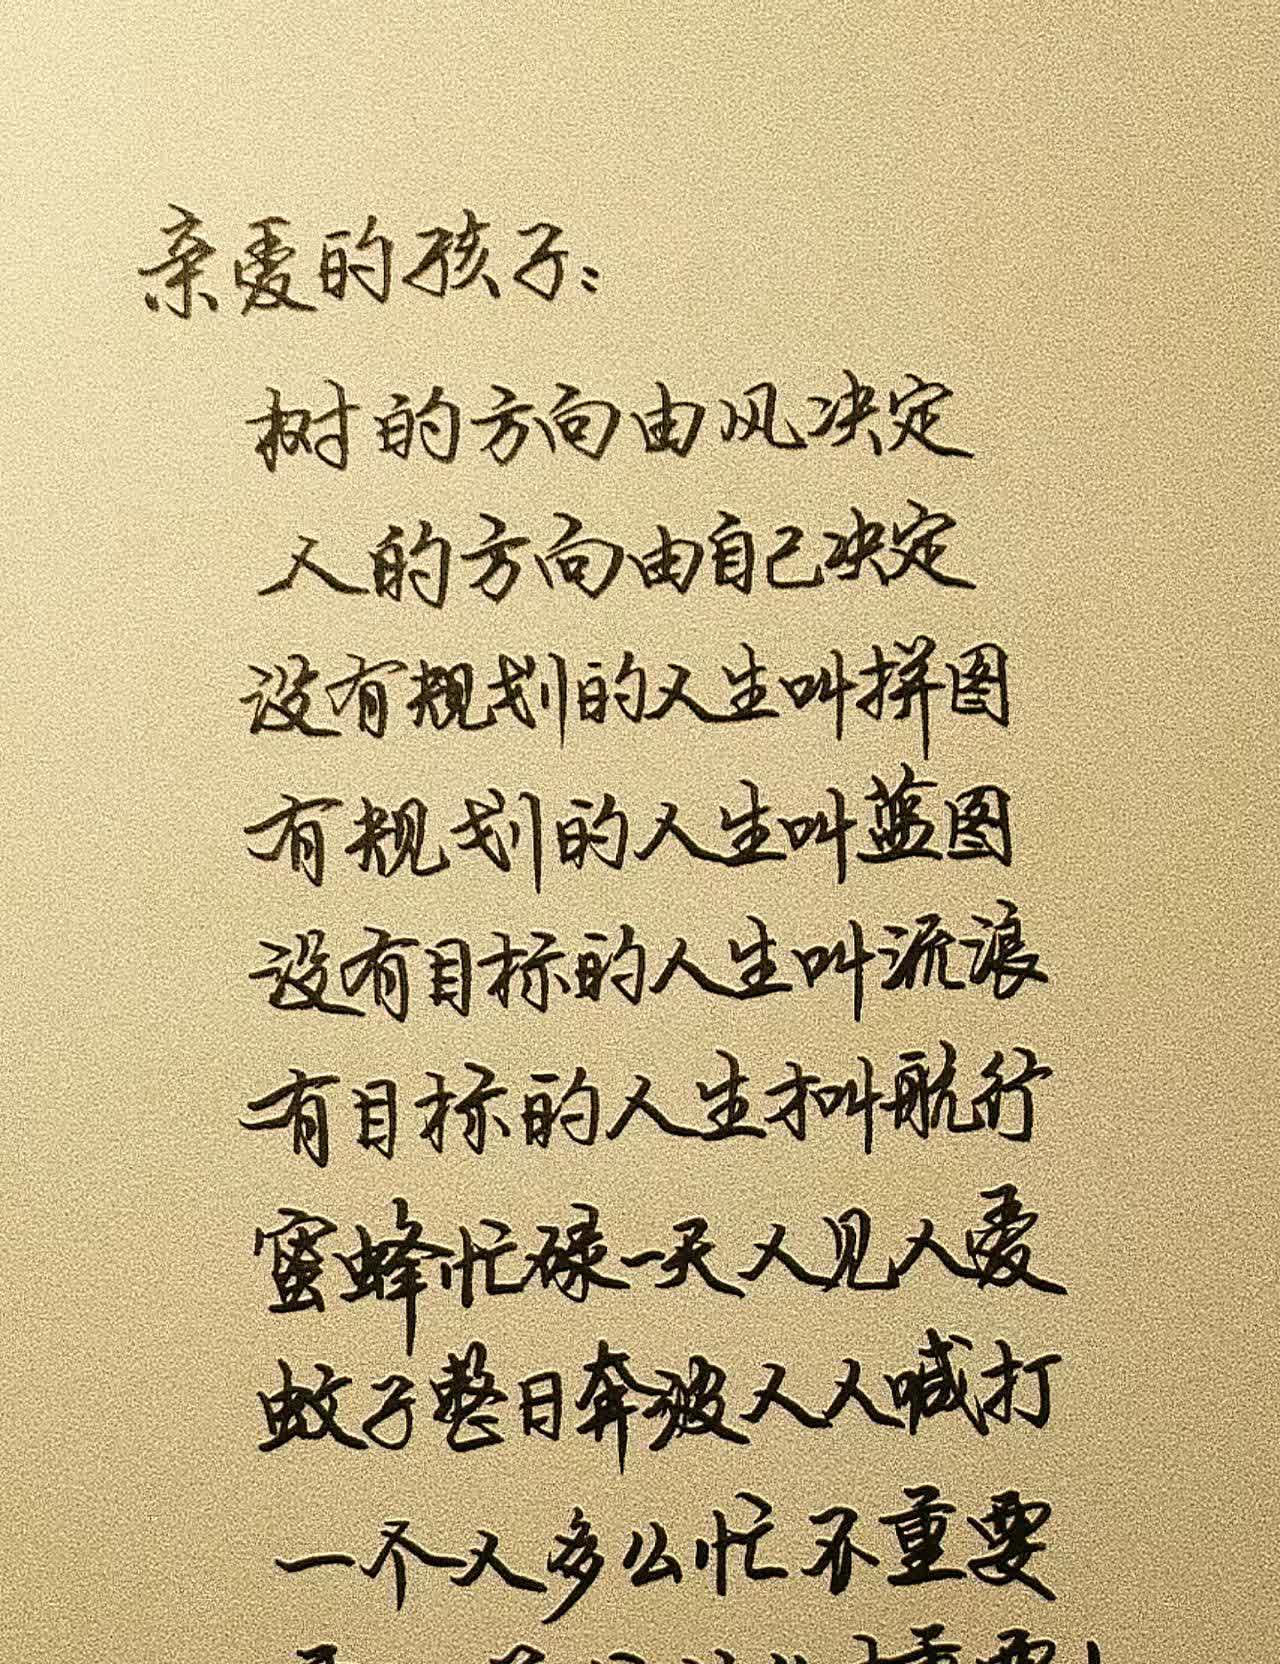 亲爱的孩子：
树的方向由风决定
人的方向由自己决定
没有规划的人生叫拼图
有规划的人生叫蓝图
没有目标的人生叫流浪
有目标的人生才叫航行
蜜蜂忙碌一天人见人爱
蚊子整日奔波人人喊打
一个人多么忙不重要